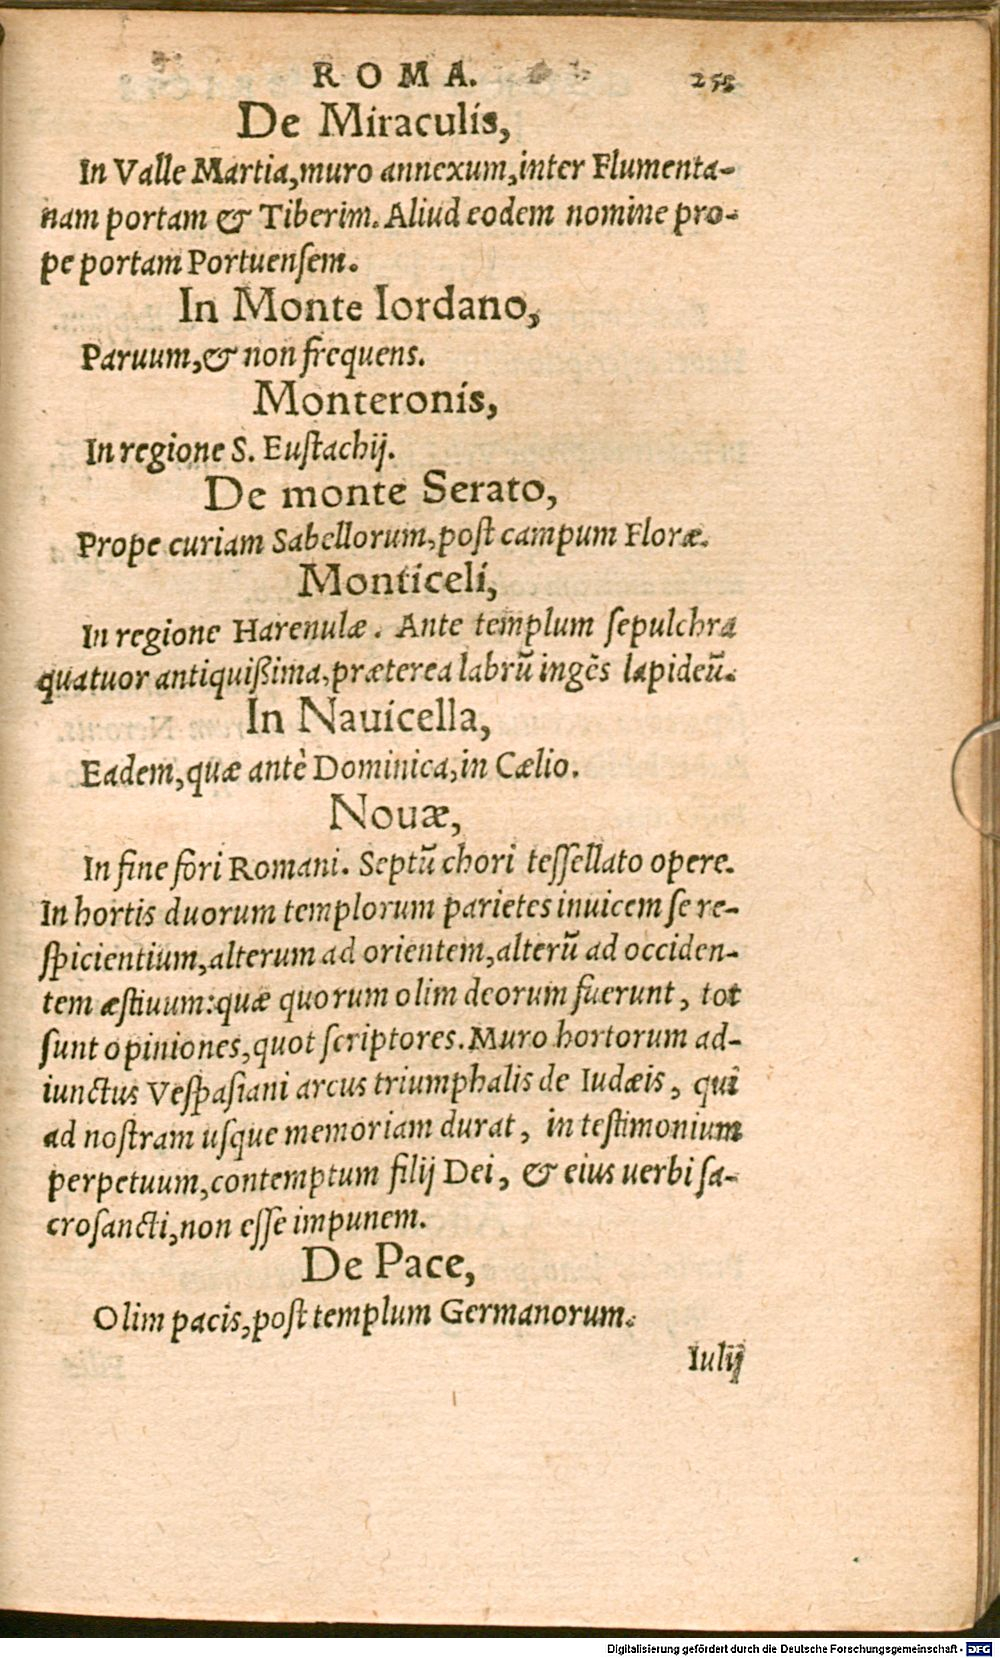 ROMA. 255
De Miraculis,
In Valle Martia, muro annexum, inter Flumenta-
nam portam & Tiberim. Aliud eodem nomine pro-
pe portam Portuenſem.
In Monte Iordano,
Paruum, & non frequens.
Monteronis,
In regione S. Euſtachij.
De monte Serato,
Prope curiam Sabellorum, poſt campum Floræ.
Monticeli,
In regione Harenulæ. Ante templum ſepulchra
quatuor antiquißima, præterea labrũ ingẽs lapideũ.
In Nauicella,
Eadem, quæ antè Dominica, in Cælio.
Nouæ,
In fine fori Romani. Septũ chori teſſellato opere.
In hortis duorum templorum parietes inuicem ſe re-
ſpicientium, alterum ad orientem, alterũ ad occiden-
tem æſtiuum: quæ quorum olim deorum fuerunt, tot
ſunt opiniones, quot ſcriptores. Muro hortorum ad-
iunctus Veſpaſiani arcus triumphalis de Iudæis, qui
ad noſtram uſque memoriam durat, in teſtimonium
perpetuum, contemptum filij Dei, & eius uerbi ſa-
croſancti, non eſſe impunem.
De Pace,
Olim pacis, poſt templum Germanorum.
Iulij
Digitalisierung gefördert durch die Deutsche Forschungsgemeinschaft - DFG